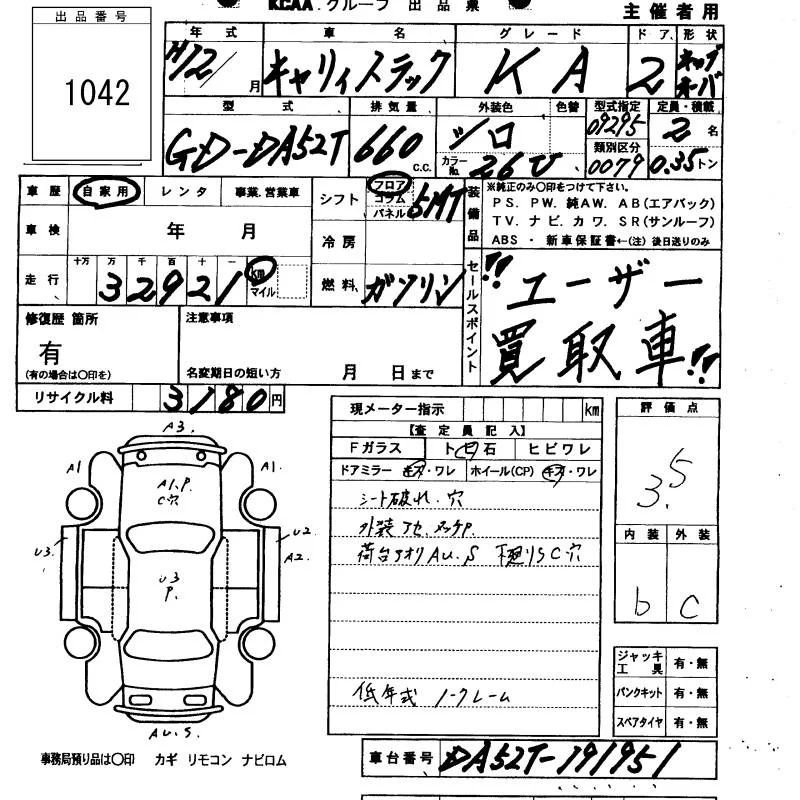 KCAA.グループ 出品票
主催者用
出品番号
1042
年式 車名 グレード ドア 形状
H12/月 キャリィトラック KA 2 キャブオーバ
型式 排気量 外装色 色替 型式指定 定員・積載
GD-DA52T 660 c.c. シロ 09295 2名
カラーNo. 26U 類別区分 0079 0.35トン
車歴 自家用 レンタ 事業.営業車
車検 年 月
走行 十万 万 千 百 十 一
32921 km マイル
シフト フロア コラム パネル 5MT
冷房
燃料 ガソリン
装備品
※純正のみ○印をつけて下さい。
PS. PW. 純AW. AB(エアバック)
TV. ナビ. カワ. SR(サンルーフ)
ABS ・ 新車保証書←(注)後日送りのみ
セールスポイント
!!ユーザー
買取車!!
修復歴 箇所
有
(有の場合は○印を)
注意事項
名変期日の短い方 月 日まで
リサイクル料 3180円
現メーター指示 km
【査定員記入】
Fガラス ト ヒ 石 ヒビワレ
ドアミラー キズ・ワレ ホイール(CP) キズ・ワレ
シート破れ.穴
荷台アオリAU.S
低年式 ノークレーム
評価点
3.5
内装 外装
b C
ジャッキ工具 有・無
パンクキット 有・無
スペアタイヤ 有・無
車台番号 DA52T-191951
A3.
A1
A1.
A1.P
C穴
U3.
U2
A2.
U3
P.
AU.S.
事務局預り品は○印 カギ リモコン ナビロム